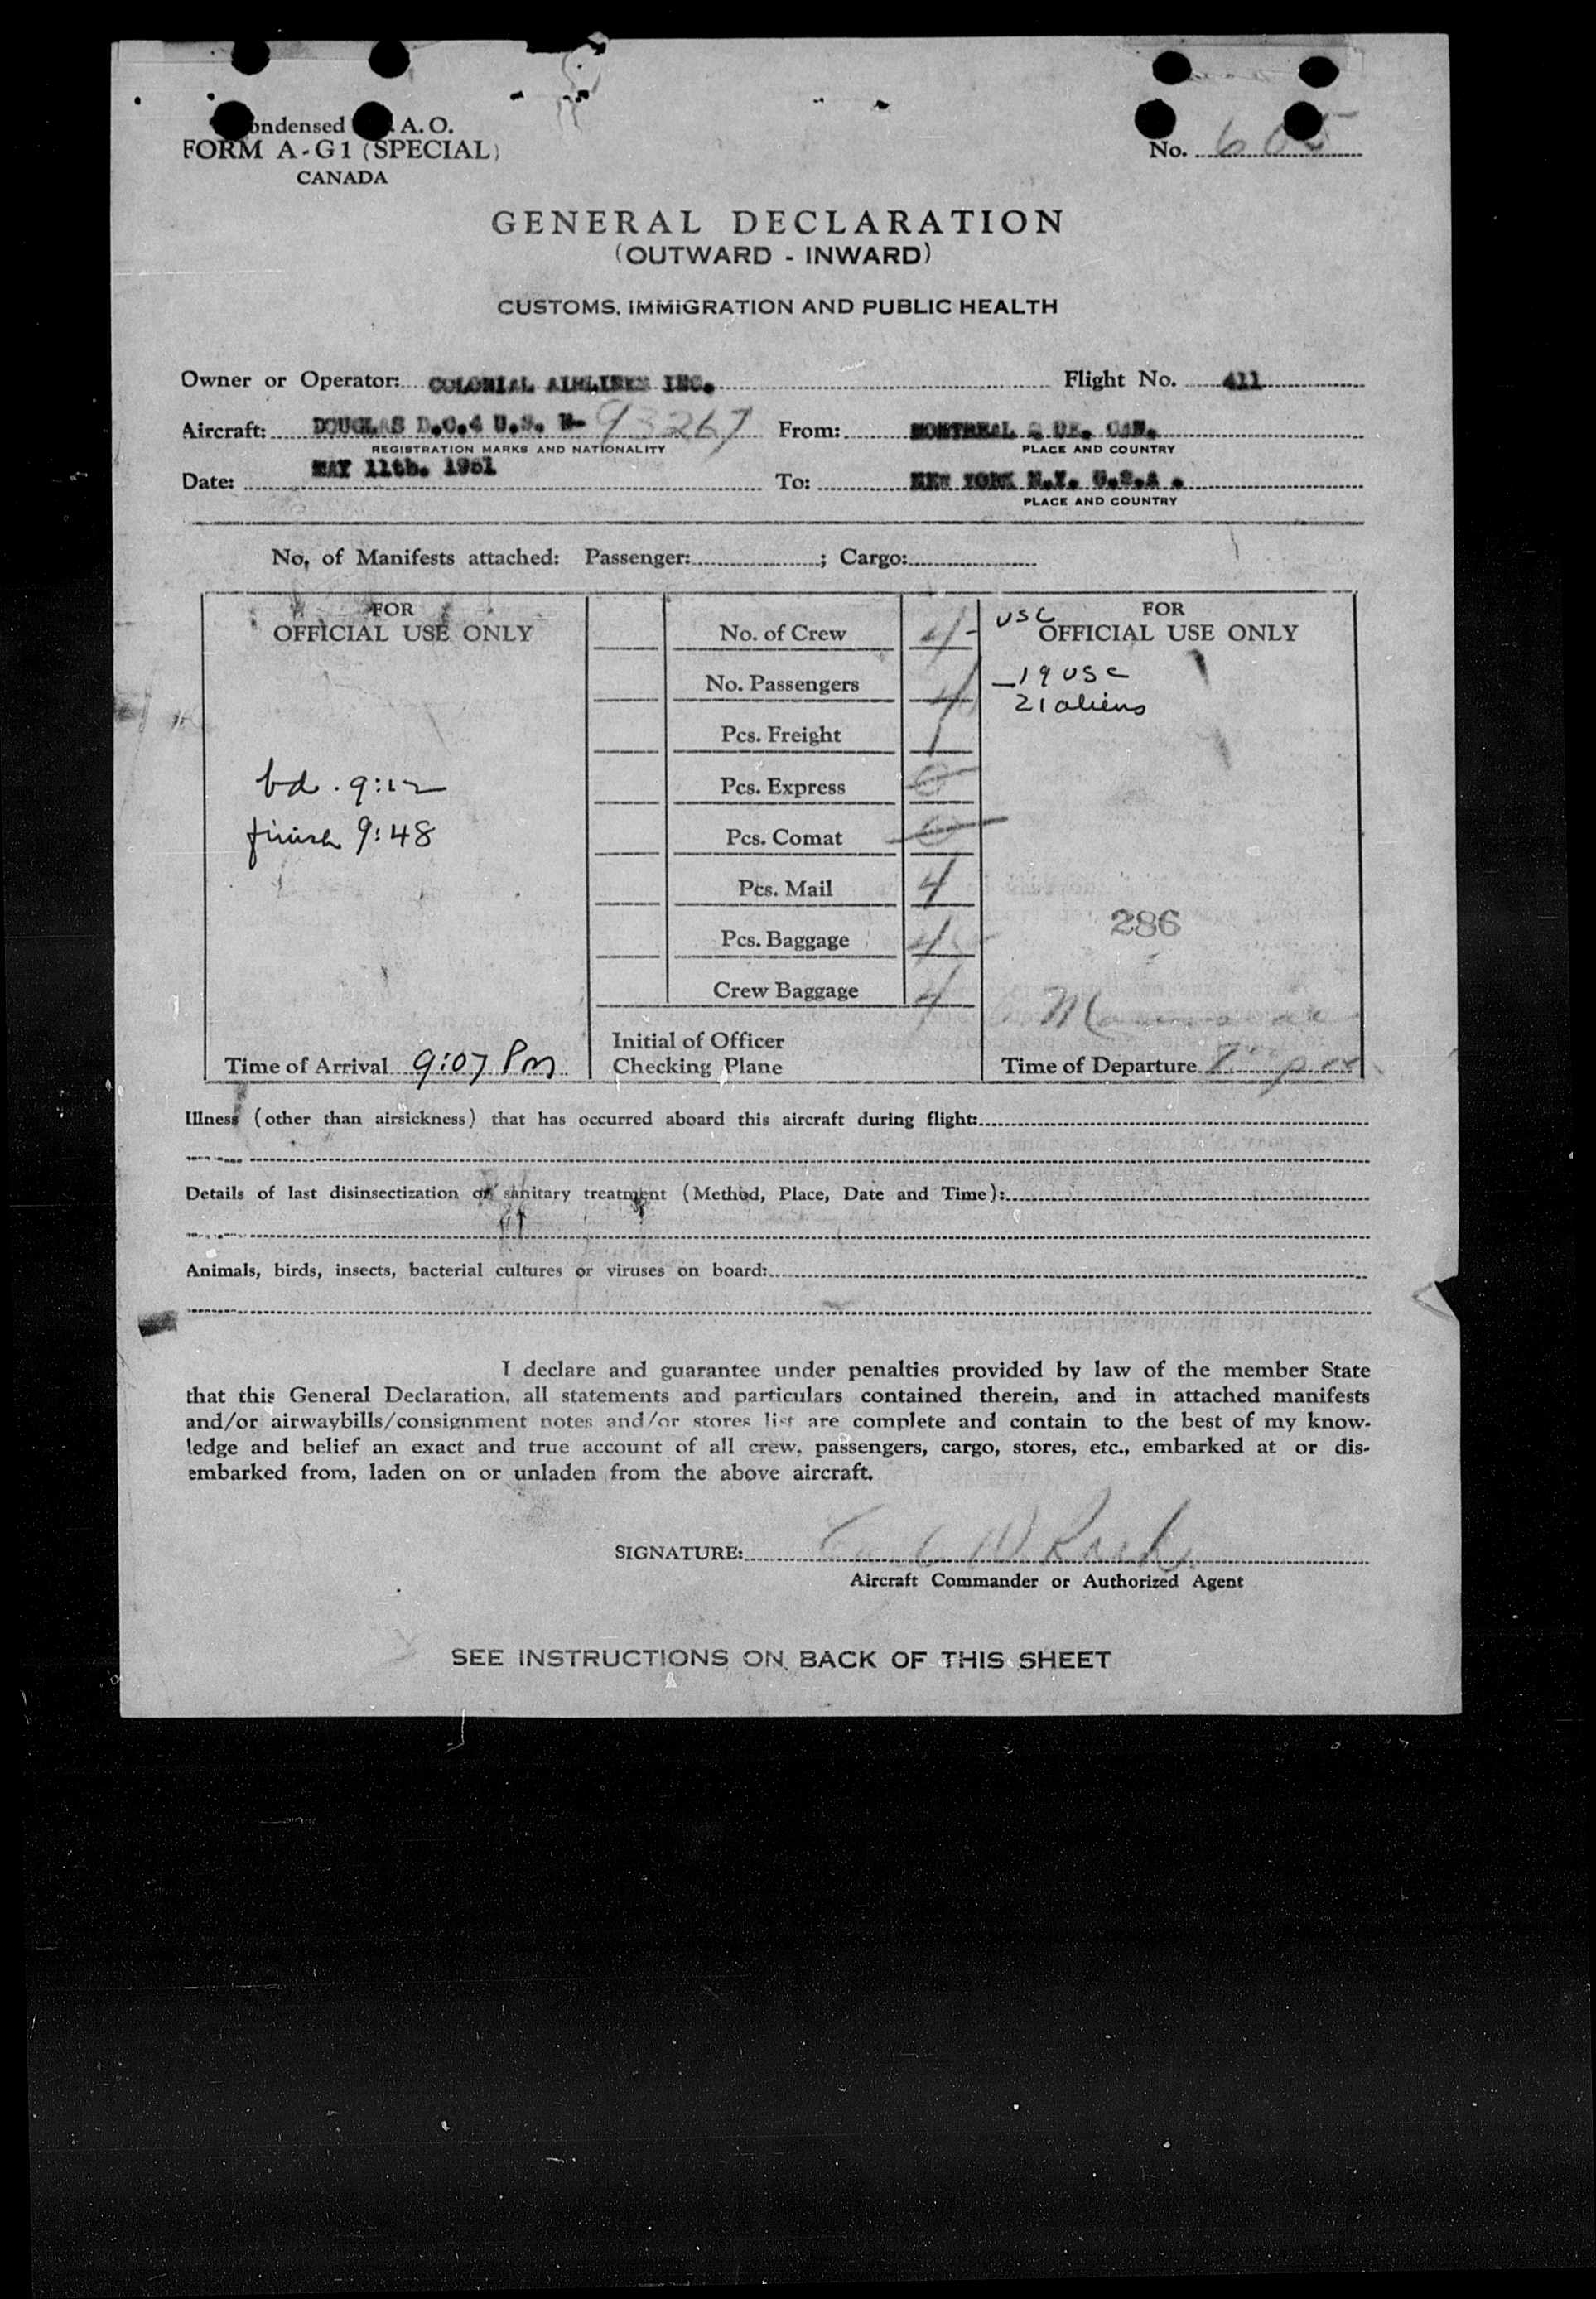 ondensed A. O.
FORM A-G1 (SPECIAL)
CANADA
No. 605
GENERAL DECLARATION
(OUTWARD - INWARD)
CUSTOMS, IMMIGRATION AND PUBLIC HEALTH
Owner or Operator: COLONIAL AIRLINES INC. Flight No. 411
Aircraft: DOUGLAS D.C.4 U.S. N- 93267 From: MONTREAL QUE. CAN.
REGISTRATION MARKS AND NATIONALITY PLACE AND COUNTRY
Date: MAY 11th. 1951 To: NEW YORK N.Y. U.S.A .
PLACE AND COUNTRY
No. of Manifests attached: Passenger: ; Cargo:
FOR
OFFICIAL USE ONLY
bd. 9:12
finish 9:48
Time of Arrival 9:07 Pm
No. of Crew 4
No. Passengers 4
Pcs. Freight 1
Pcs. Express 0
Pcs. Comat 0
Pcs. Mail 4
Pcs. Baggage 4
Crew Baggage 4
Initial of Officer
Checking Plane
USC
FOR
OFFICIAL USE ONLY
19 USC
21 aliens
286
Time of Departure
Illness (other than airsickness) that has occurred aboard this aircraft during flight:
Details of last disinsectization or sanitary treatment (Method, Place, Date and Time):
Animals, birds, insects, bacterial cultures or viruses on board:
I declare and guarantee under penalties provided by law of the member State
that this General Declaration, all statements and particulars contained therein, and in attached manifests
and/or airwaybills/consignment notes and/or stores list are complete and contain to the best of my know-
ledge and belief an exact and true account of all crew, passengers, cargo, stores, etc., embarked at or dis-
embarked from, laden on or unladen from the above aircraft.
SIGNATURE:
Aircraft Commander or Authorized Agent
SEE INSTRUCTIONS ON BACK OF THIS SHEET